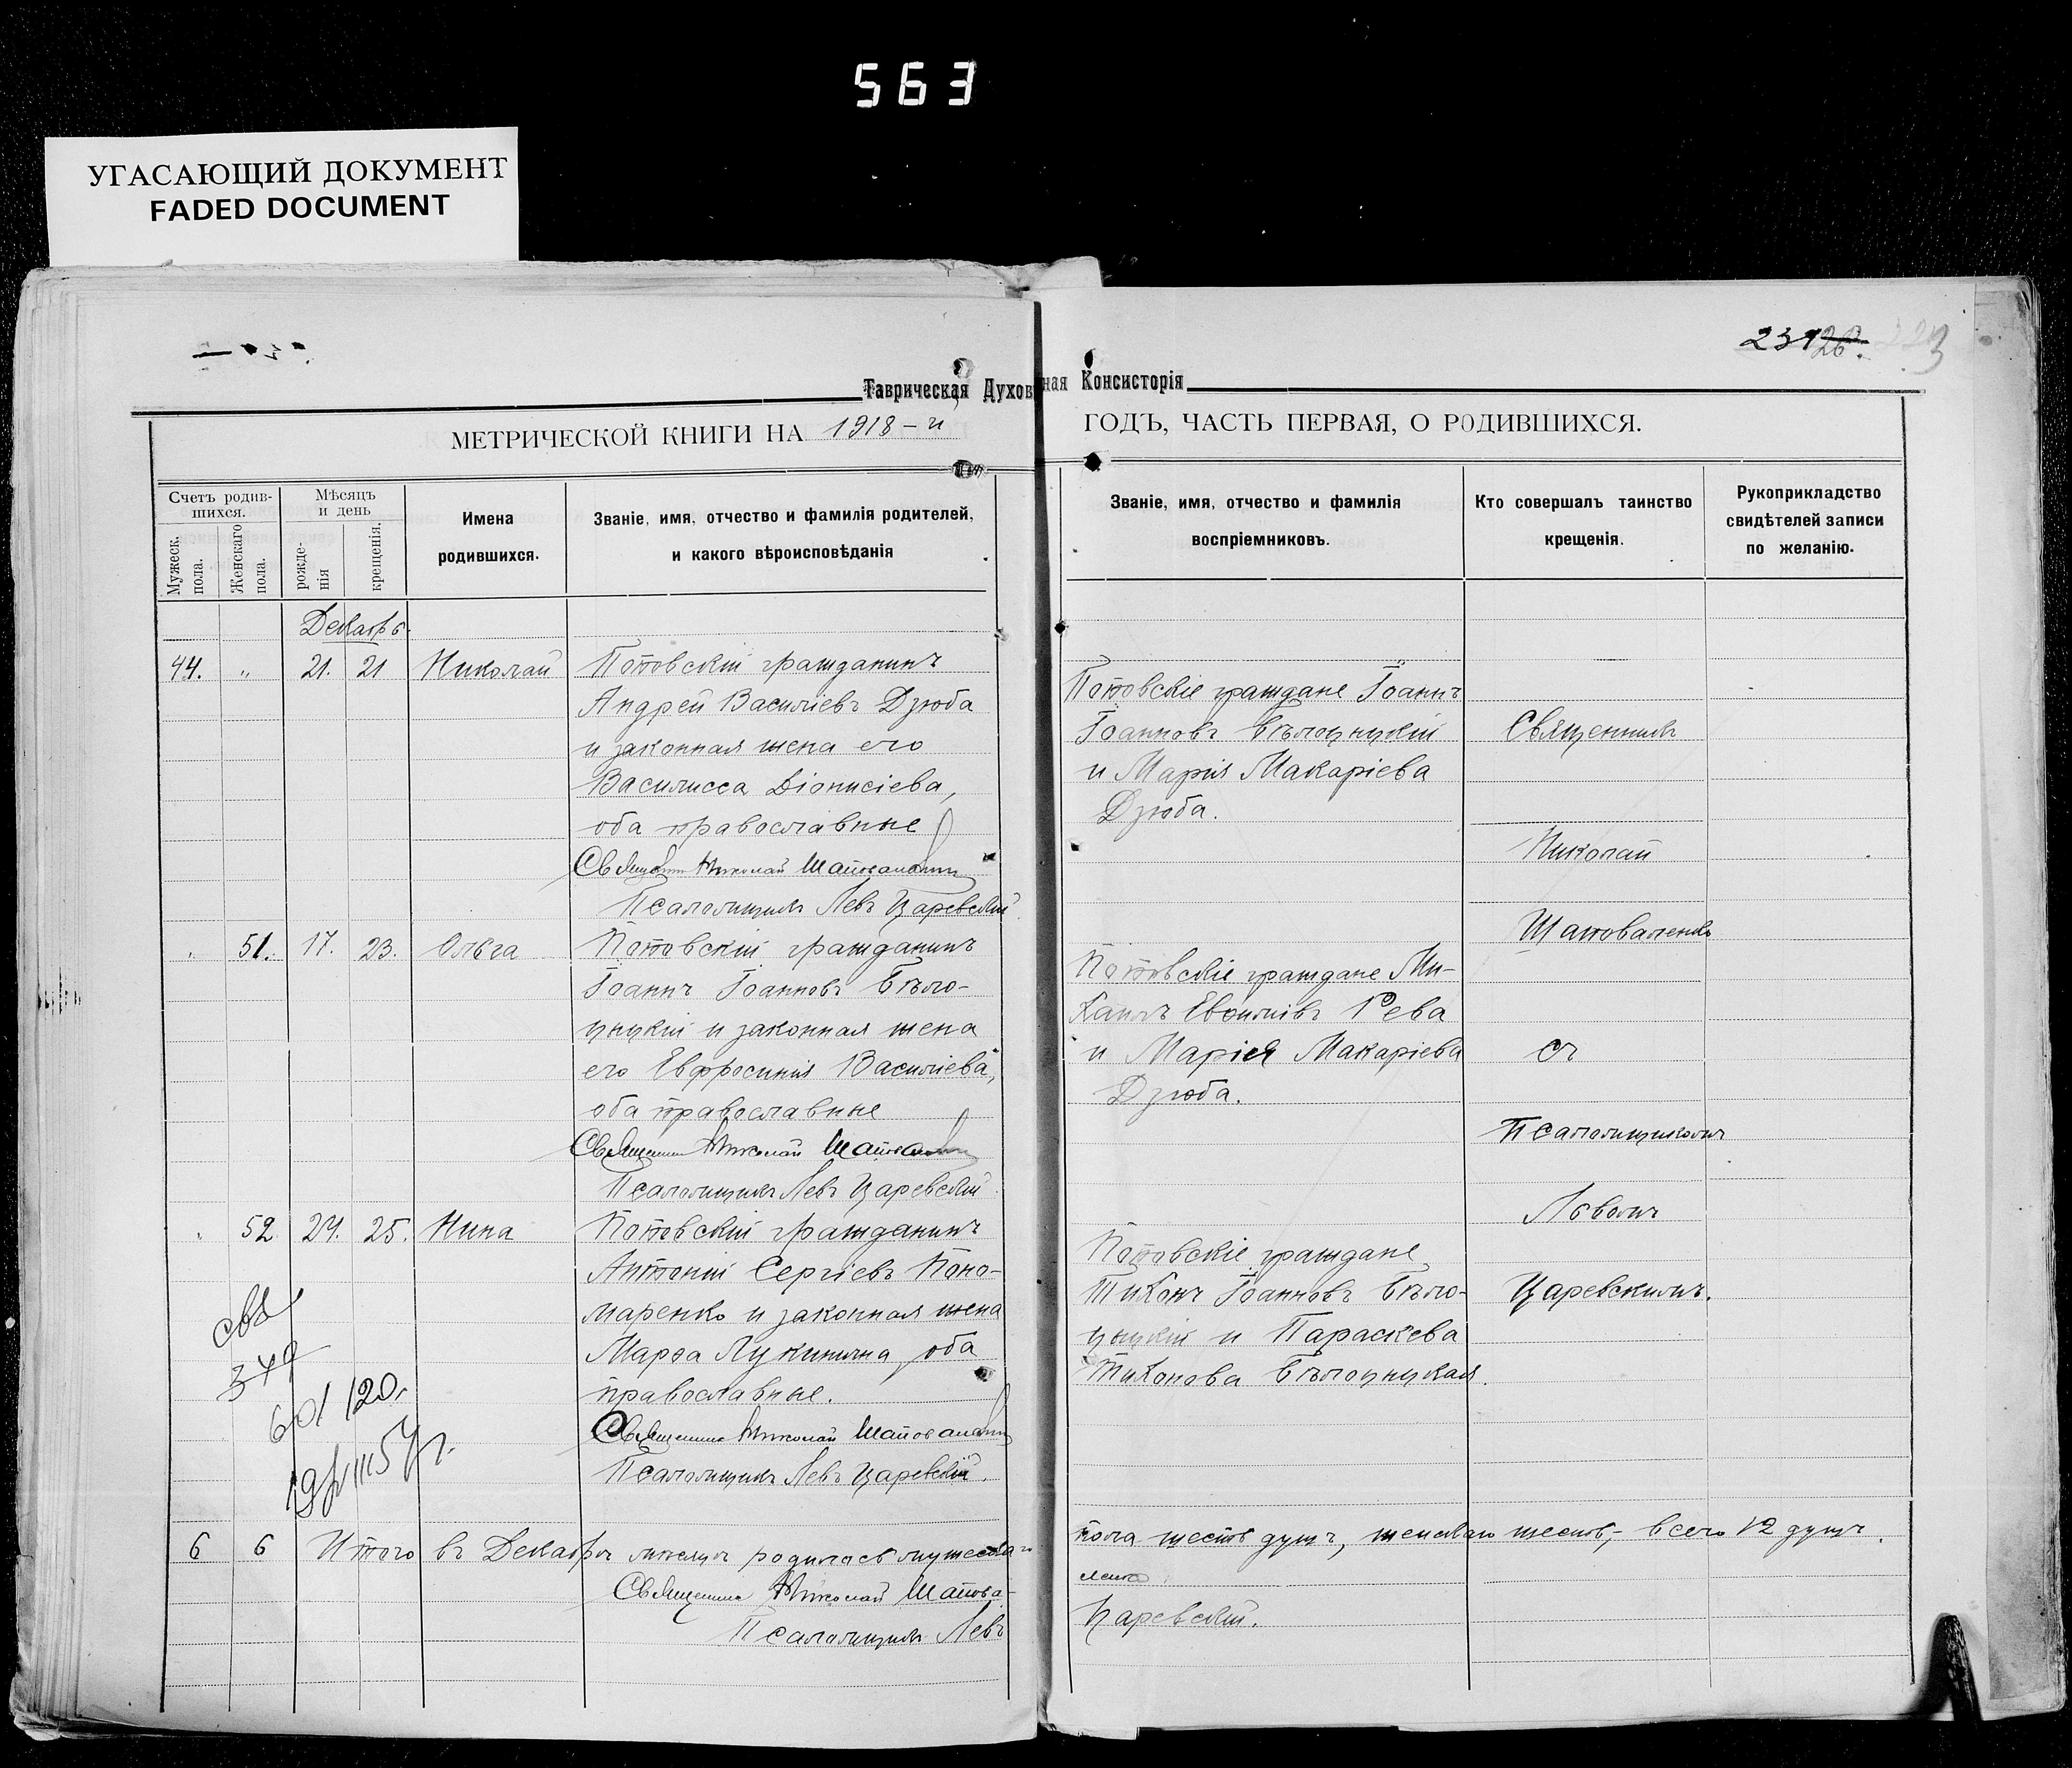 563
УГАСАЮЩИЙ ДОКУМЕНТ
FADED DOCUMENT
231 26.
Таврическая Духовная Консисторія
МЕТРИЧЕСКОЙ КНИГИ НА 1918-й ГОДЪ, ЧАСТЬ ПЕРВАЯ, О РОДИВШИХСЯ.
Счетъ родив-
шихся.
Мужеск. пола.
Женскаго пола.
Мѣсяцъ
и день
рожде-
нія
крещенія.
Имена
родившихся.
Званіе, имя, отчество и фамилія родителей,
и какого вѣроисповѣданія
Званіе, имя, отчество и фамилія
воспріемниковъ.
Кто совершалъ таинство
крещенія.
Рукоприкладство
свидѣтелей записи
по желанію.
Декабрь
44. " 21. 21 Николай Поповскій гражданинъ
Андрей Василіевъ Дзюба
и законная жена его
Василисса Діонисіева,
оба православные
Священникъ Николай Шаповаленко
Псаломщикъ Левъ Царевскій
Поповскіе граждане Іоаннъ
Іоанновъ Бѣлоцицкій
и Марія Макаріева
Дзюба.
" 51. 17. 23. Ольга Поповскій гражданинъ
Іоаннъ Іоанновъ Бѣло-
цицкій и законная жена
его Евфросинія Василіева,
оба православные
Священникъ Николай Шаповаленко
Псаломщикъ Левъ Царевскій
Поповскіе граждане Ми-
хаилъ Рева
и Марія Макаріева
Дзюба.
" 52 24. 25. Нина Поповскій гражданинъ
Антоній Сергіевъ Поно-
маренко и законная жена
Марѳа Лукинична, оба
православные.
Священникъ Николай Шаповаленко
Псаломщикъ Левъ Царевскій.
Поповскіе граждане
Тихонъ Іоанновъ Бѣло-
цицкій и Параскева
Тихонова Бѣлоцицкая.
Священникъ
Николай
Шаповаленко
съ
Псаломщикомъ
Львомъ
Царевскимъ.
6 6 Итого въ Декабрѣ мѣсяцѣ родилось мужескаго
пола шесть душъ, женскаго шесть, - всего 12 душъ.
Священникъ Николай Шапова-
ленко
Псаломщикъ Левъ
Царевскій.